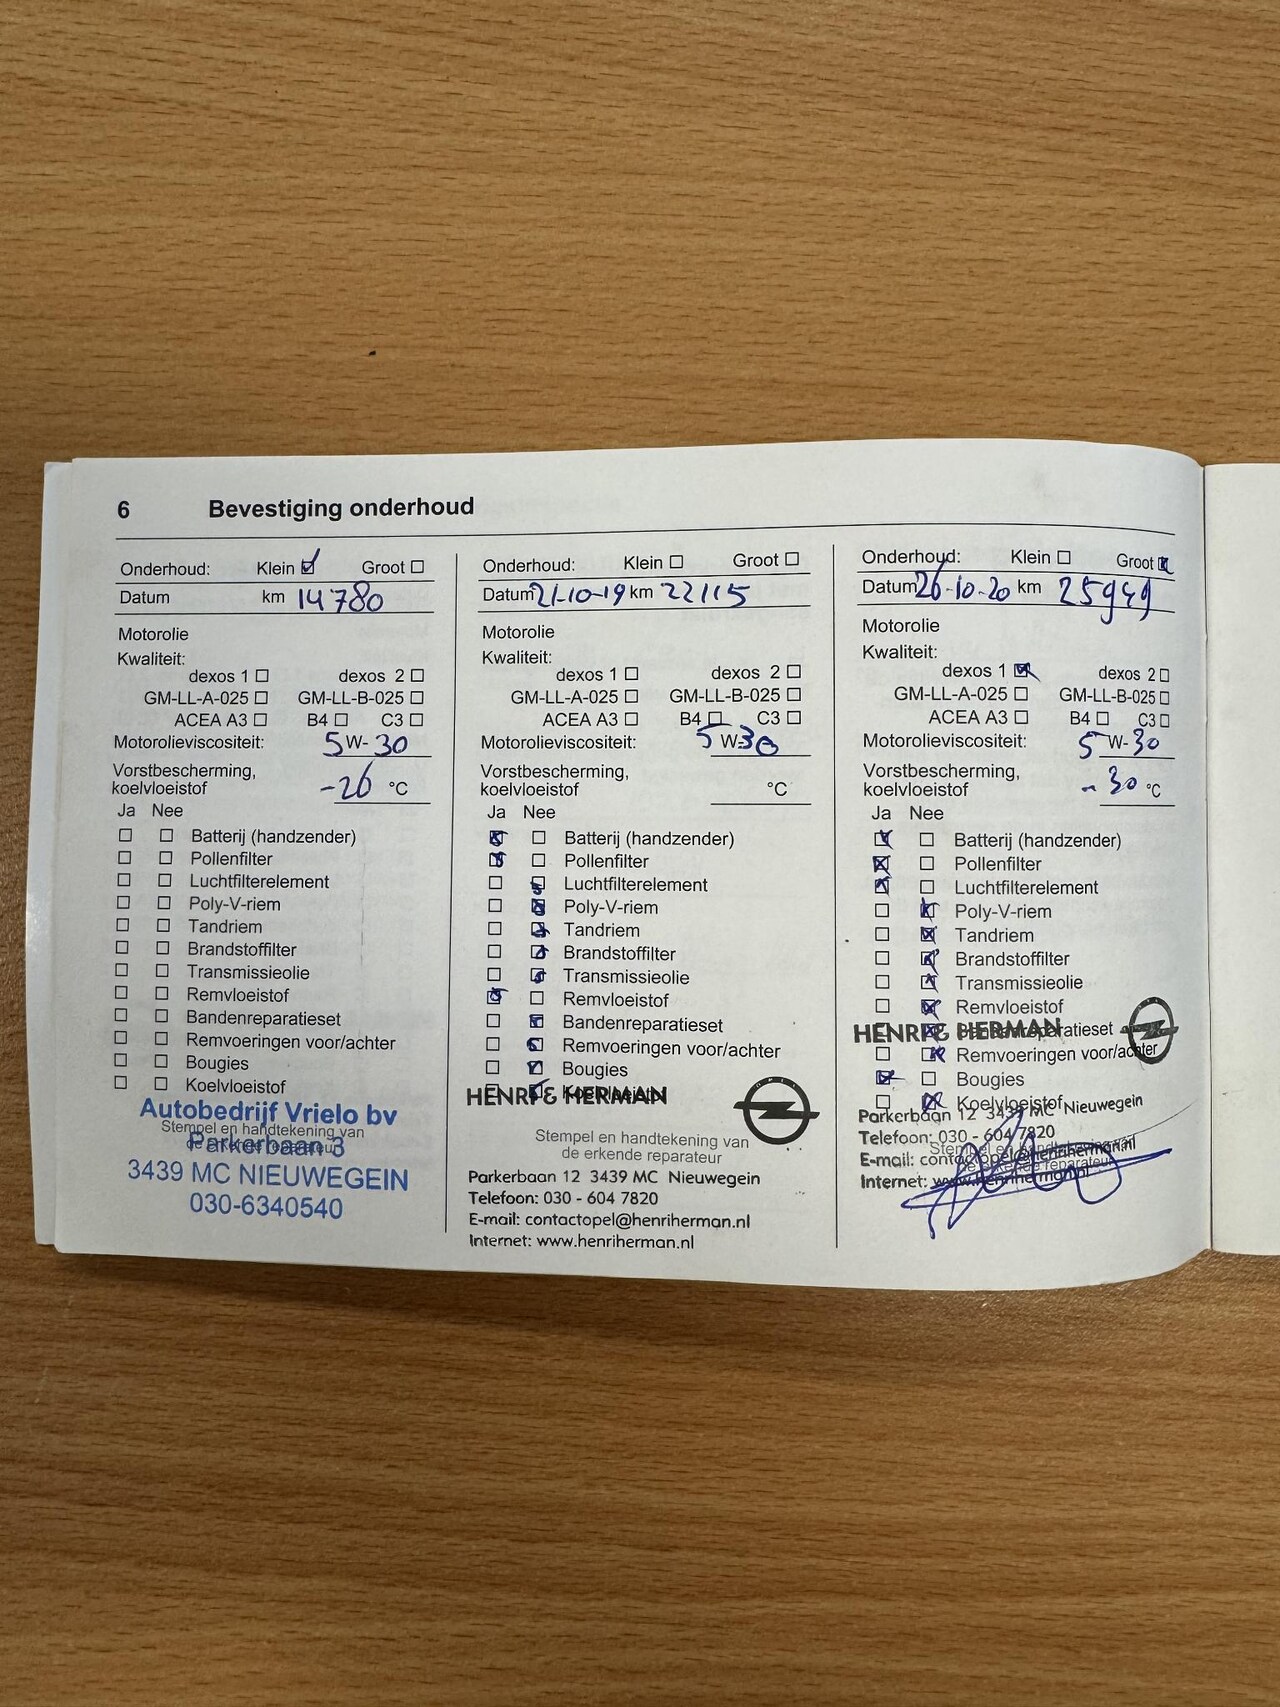 6 Bevestiging onderhoud
Onderhoud: Klein ☑ Groot ☐
Datum km 14780
Motorolie
Kwaliteit:
dexos 1 ☐ dexos 2 ☐
GM-LL-A-025 ☐ GM-LL-B-025 ☐
ACEA A3 ☐ B4 ☐ C3 ☐
Motorolieviscositeit: 5 W- 30
Vorstbescherming,
koelvloeistof -26 °C
Ja Nee
☐ ☐ Batterij (handzender)
☐ ☐ Pollenfilter
☐ ☐ Luchtfilterelement
☐ ☐ Poly-V-riem
☐ ☐ Tandriem
☐ ☐ Brandstoffilter
☐ ☐ Transmissieolie
☐ ☐ Remvloeistof
☐ ☐ Bandenreparatieset
☐ ☐ Remvoeringen voor/achter
☐ ☐ Bougies
☐ ☐ Koelvloeistof
Autobedrijf Vrielo bv
Stempel en handtekening van
de erkende reparateur
Parkerbaan 3
3439 MC NIEUWEGEIN
030-6340540
Onderhoud: Klein ☐ Groot ☐
Datum 21-10-19 km 22115
Motorolie
Kwaliteit:
dexos 1 ☐ dexos 2 ☐
GM-LL-A-025 ☐ GM-LL-B-025 ☐
ACEA A3 ☐ B4 ☐ C3 ☐
Motorolieviscositeit: 5 W-30
Vorstbescherming,
koelvloeistof °C
Ja Nee
☒ ☐ Batterij (handzender)
☒ ☐ Pollenfilter
☐ ☒ Luchtfilterelement
☐ ☒ Poly-V-riem
☐ ☒ Tandriem
☐ ☒ Brandstoffilter
☐ ☒ Transmissieolie
☒ ☐ Remvloeistof
☐ ☒ Bandenreparatieset
☐ ☒ Remvoeringen voor/achter
☐ ☒ Bougies
☐ ☒ Koelvloeistof
HENRI & HERMAN
OPEL
Stempel en handtekening van
de erkende reparateur
Parkerbaan 12 3439 MC Nieuwegein
Telefoon: 030 - 604 7820
E-mail: contactopel@henriherman.nl
Internet: www.henriherman.nl
Onderhoud: Klein ☐ Groot ☒
Datum 26-10-20 km 25949
Motorolie
Kwaliteit:
dexos 1 ☒ dexos 2 ☐
GM-LL-A-025 ☐ GM-LL-B-025 ☐
ACEA A3 ☐ B4 ☐ C3 ☐
Motorolieviscositeit: 5 W-30
Vorstbescherming,
koelvloeistof -30 °C
Ja Nee
☒ ☐ Batterij (handzender)
☒ ☐ Pollenfilter
☒ ☐ Luchtfilterelement
☐ ☒ Poly-V-riem
☐ ☒ Tandriem
☐ ☒ Brandstoffilter
☐ ☒ Transmissieolie
☐ ☒ Remvloeistof
☐ ☒ Bandenreparatieset
HENRI & HERMAN
OPEL
☐ ☒ Remvoeringen voor/achter
☒ ☐ Bougies
☐ ☒ Koelvloeistof
Parkerbaan 12 3439 MC Nieuwegein
Telefoon: 030 - 604 7820
Stempel en handtekening van
E-mail: contactopel@henriherman.nl
de erkende reparateur
Internet: www.henriherman.nl